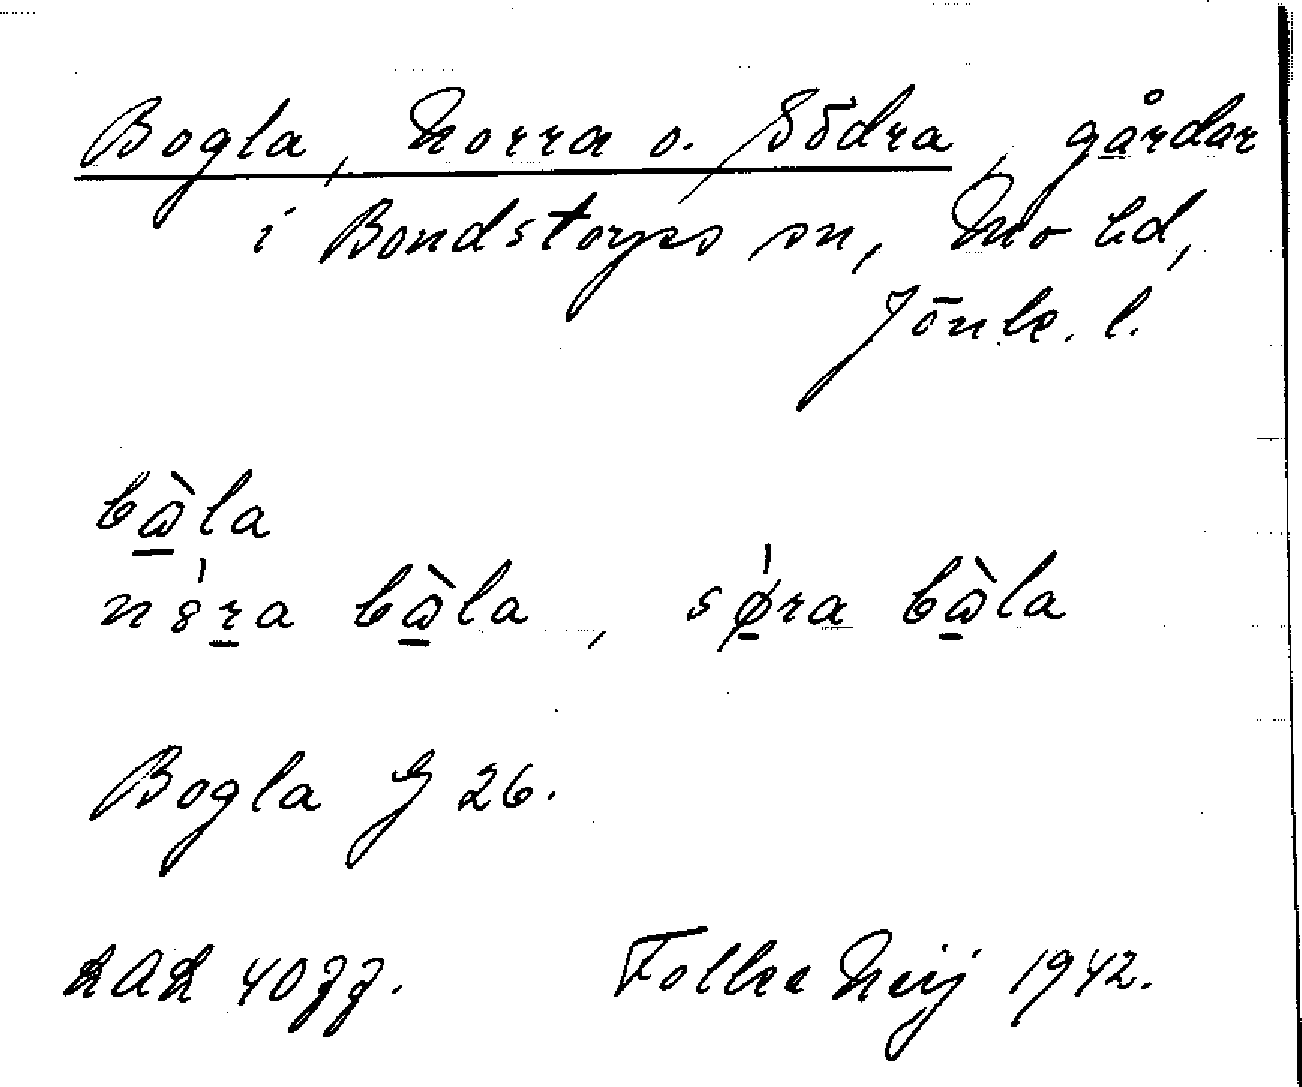 Bogla, Norra o. Södra, gårdar
i Bondstorps sn, Mo hd,
Jönk. l.
bὼla
nɞ́ra bὼla, sǿra bὼla
Bogla G 26.
4077. Folke Neij 1942.